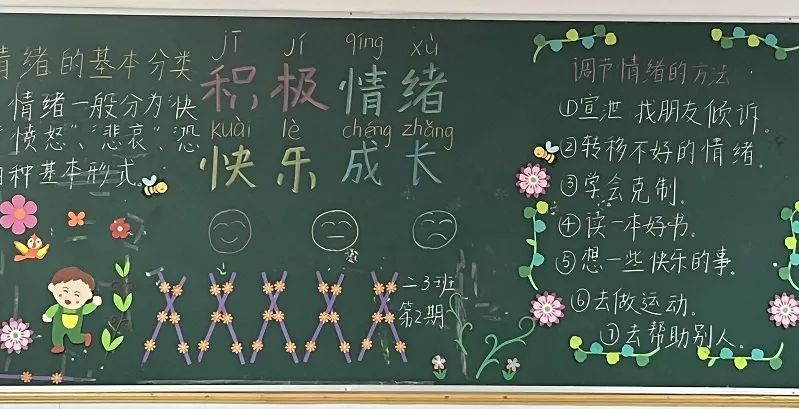 情绪的基本分类
情绪一般分为“快
“愤怒”、“悲哀”、“恐
种基本形式。
jī jí qíng xù
积极情绪
kuài lè chéng zhǎng
快乐成长
二3班
第2期
调节情绪的方法
①宣泄 找朋友倾诉。
②转移不好的情绪。
③学会克制。
④读一本好书。
⑤想一些快乐的事。
⑥去做运动。
⑦去帮助别人。